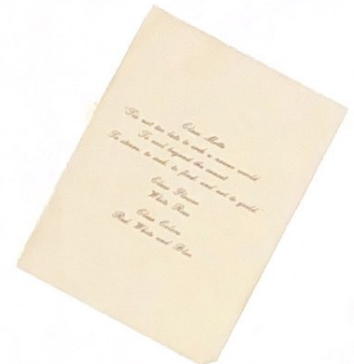 Class Motto
'Tis not too late to seek a newer world
To sail beyond the sunset
To strive, to seek, to find, and not to yield
Class Flower
White Rose
Class Colors
Red White and Blue